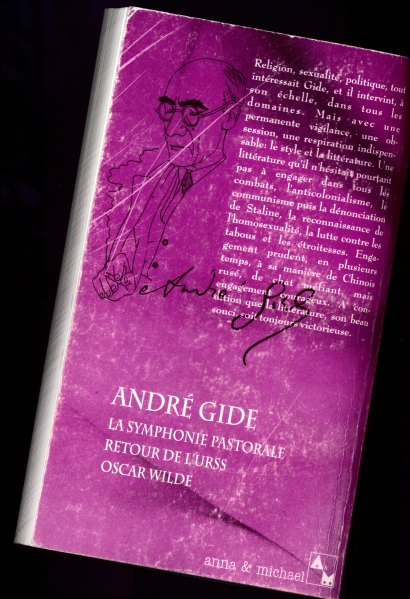 Religion, sexualité, politique, tout
intéressait Gide, et il intervint, à
son échelle, dans tous les
domaines. Mais avec une
permanente vigilance, une ob-
session, une respiration indispen-
sable: le style et la littérature. Une
littérature qu'il n'hésitait pourtant
pas à engager dans tous les
combats, l'anticolonialisme, le
communisme puis la dénonciation
de Staline, la reconnaissance de
l'homosexualité, la lutte contre les
tabous et les étroitesses. Enga-
gement prudent, en plusieurs
temps, à sa manière de Chinois
rusé, de chat méfiant, mais
engagement courageux. A con-
dition que la littérature, son beau
souci, soit toujours victorieuse.
André Gide
ANDRÉ GIDE
LA SYMPHONIE PASTORALE
RETOUR DE L'URSS
OSCAR WILDE
anna & michael